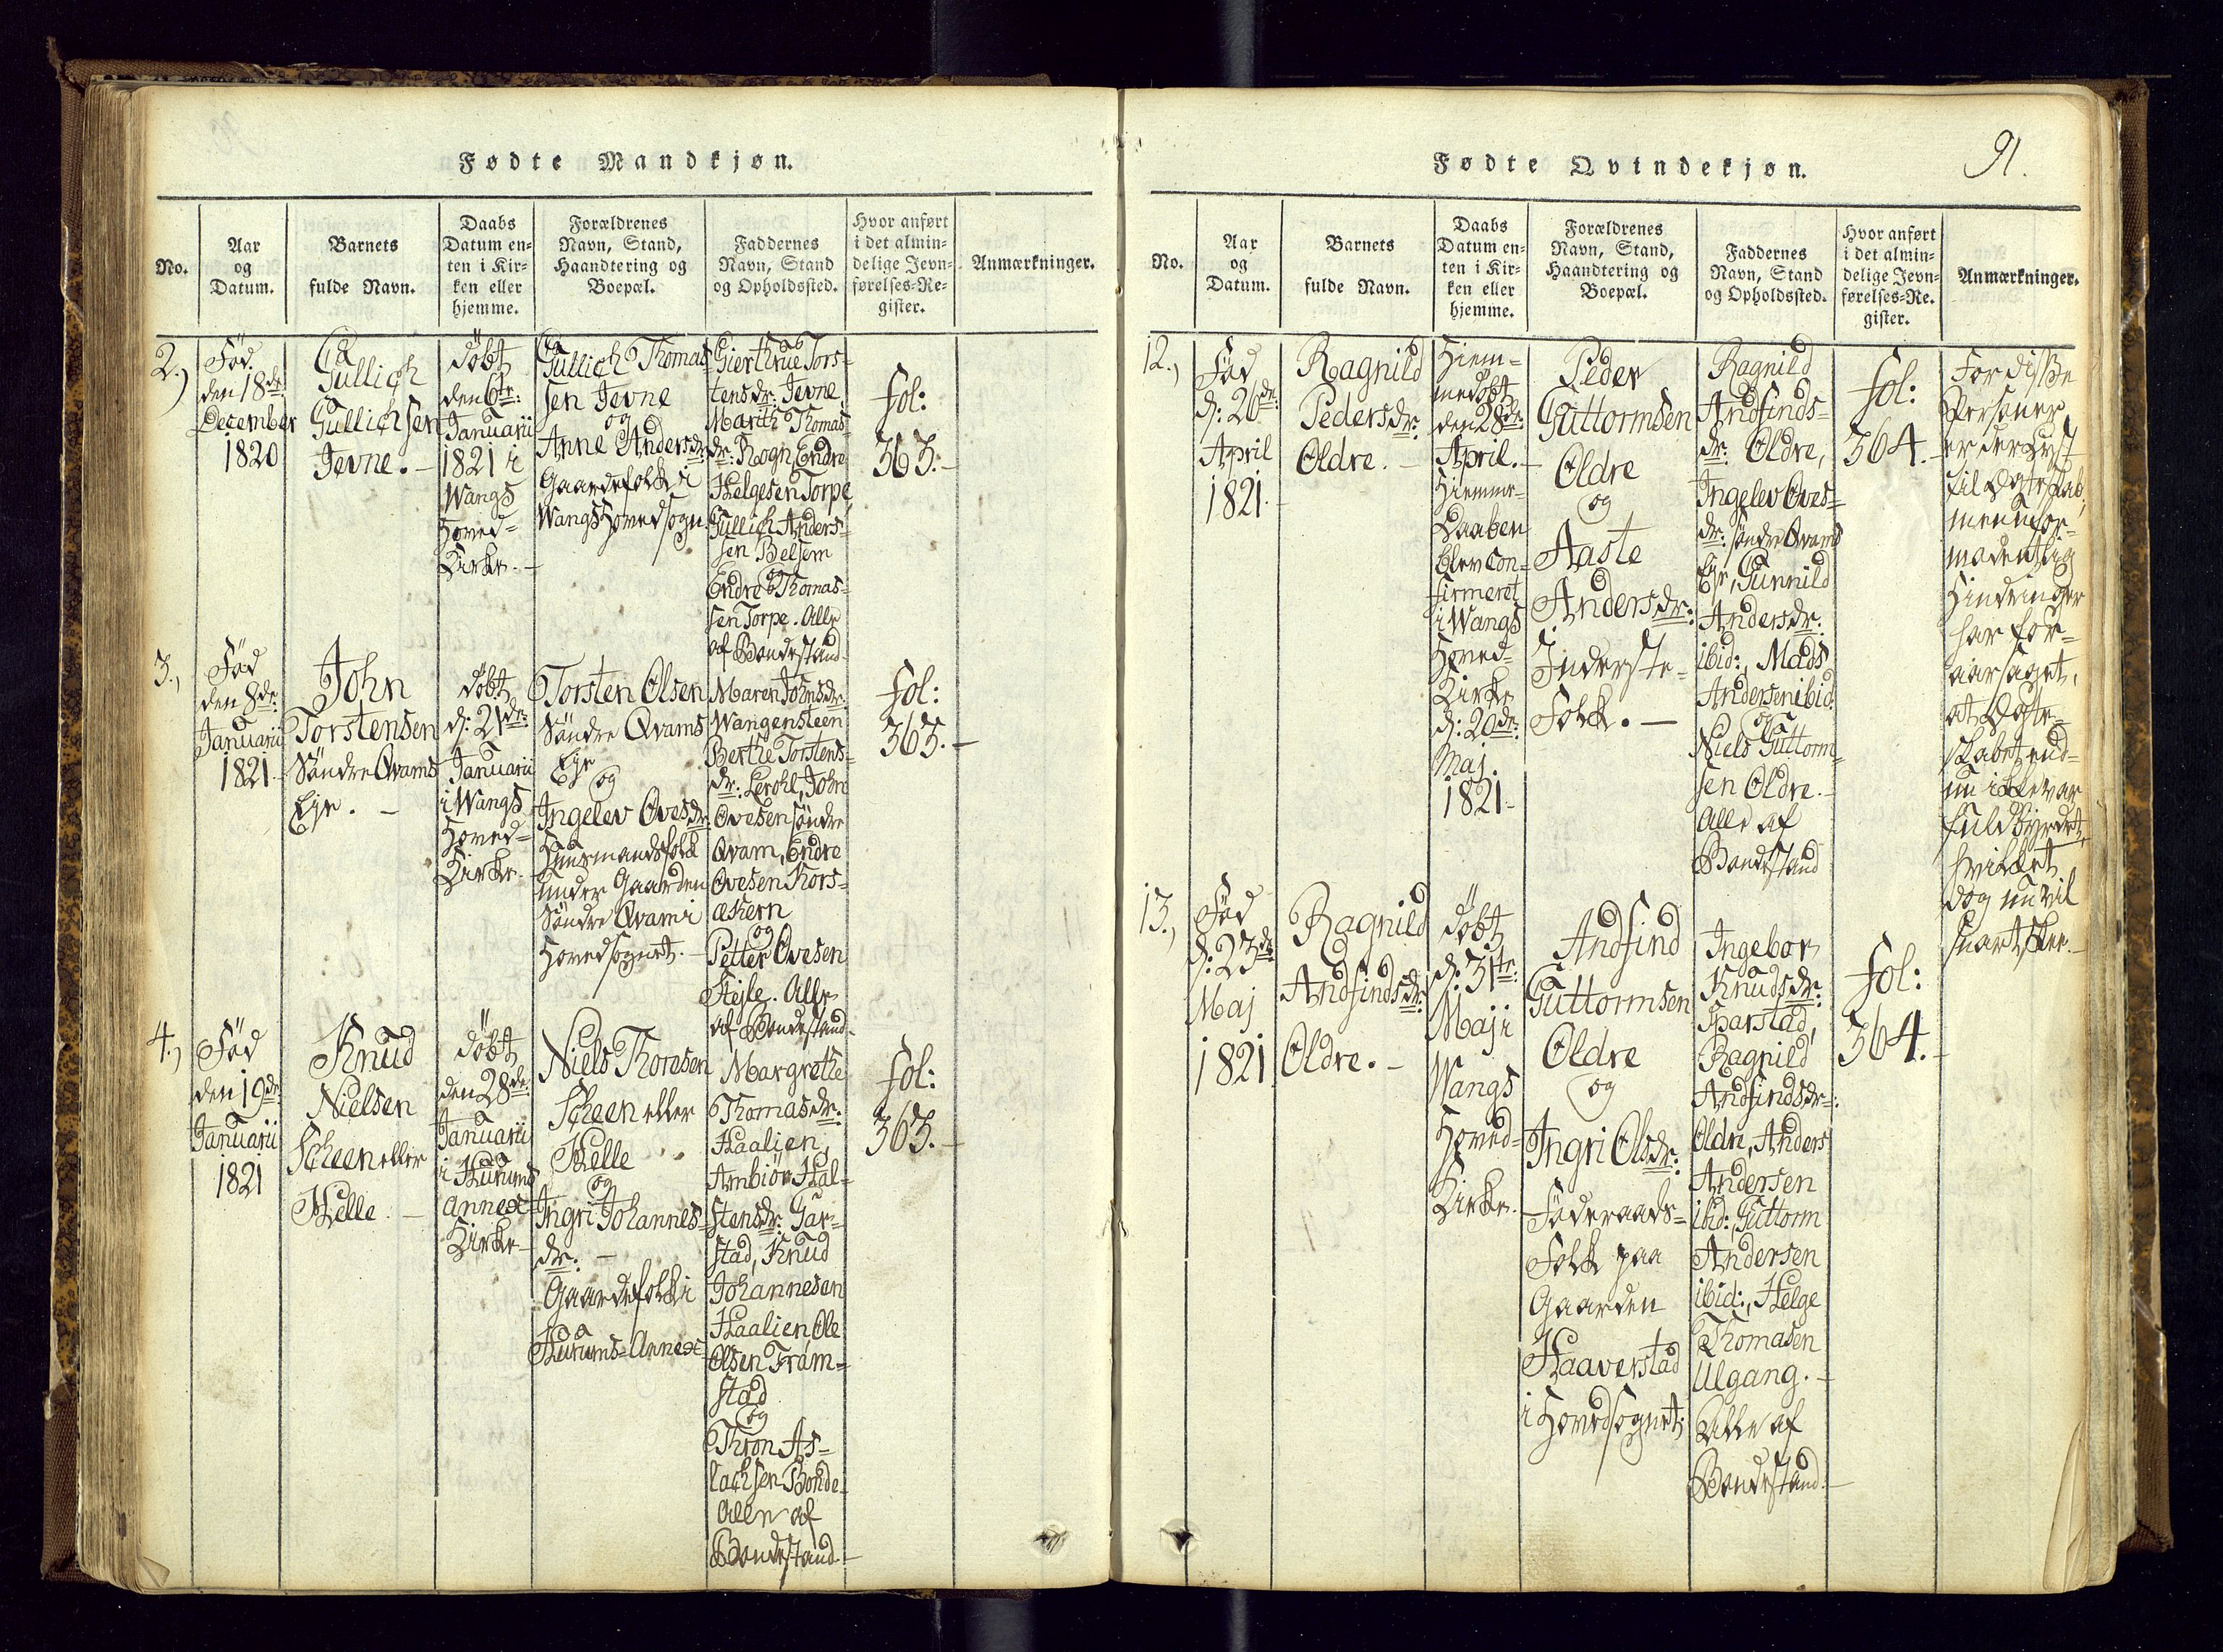 Fødte Mandkjøn.
No.
Aar
og
Datum.
Barnets
fulde Navn.
Daabs
Datum en-
ten i Kir-
ken eller
hjemme.
Forældrenes
Navn, Stand,
Haandtering og
Boepæl.
Faddernes
Navn, Stand
og Opholdssted.
Hvor anført
i det almin-
delige Jevn-
førelses-Re-
gister.
Anmærkninger.
2.,
Fød
den 18de
December
1820
Gullich
Gullichsen
Jevne. –
döbt
den 6te:
Januarii
1821 i
Wangs
Hoved-
Kirke. –
Gullich Thomas
sen Jevne
og
Anne Andersdr:
Gaardefolk i
Wangs Hovedsogn
Gierthrue Tors-
tensdr: Jevne,
Marith Thomas-
dr: Rogn, Endre
Helgesen Torpe,
Gullich Anders-
sen Belsem
og
Endre Thomas-
sen Torpe. Alle
af Bondestand.
fol:
363. –
3.,
Fød
den 8de:
Januarii
1821
John
Torstensen
Söndre Qvams
Eje. –
döbt
d: 21de:
Januarii
i Wangs
Hoved-
Kirke. –
Torsten Olsen
Söndre Qvams
Eje
og
Ingelev Ovesdr:
Huusmandsfolk
under Gaarden
Söndre Qvam i
Hovedsognet. –
Maren Johnsdr:
Wangensteen
Berthe Torstens-
dr: Lerohl, John
Ovesen söndre
Qvam, Endre
Ovesen Kors-
ækern
og
Petter Ovesen
Stejle. Alle
af Bondestand.
fol:
363. –
4.,
Fød
den 19de:
Januarii
1821
Knud
Nielsen
Scheen eller
Helle –
döbt
den 28de:
Januarii
i Hurums
Annex
Kirke –
Niels Thoresen
Scheen eller
Helle
og
Ingri Johannes-
dr: –
Gaardefolk i
Hurums-Annex
Margrethe
Thomasdr:
Haalien,
Ambiör Hal-
stensdr: Gar-
stad, Knud
Johannesen
Haalien Ole
Olsen Fram-
stad
og
Thron As-
lachsen Bonde
Alle af
Bondestand. –
fol:
363. –
Fødte Qvindekjøn.
91.
No.
Aar
og
Datum.
Barnets
fulde Navn.
Daabs
Datum en-
ten i Kir-
ken eller
hjemme.
Forældrenes
Navn, Stand,
Haandtering og
Boepæl.
Faddernes
Navn, Stand
og Opholdssted.
Hvor anført
i det almin-
delige Jevn-
førelses-Re.
gister.
Anmærkninger.
12.,
Fød
d: 26de:
April
1821.
Ragnild
Pedersdr:
Oldre. –
Hiem-
medøbt
den 28de:
April. –
Hiemme-
Daaben
blev con-
firmeret
i Wangs
Hoved-
Kirke
d: 20de:
Maj.
1821 –
Peder
Guttormsen
Oldre
og
Aaste
Andersdr:
Inderste-
Folk. –
Ragnild
Andfinds-
dr: Oldre,
Ingelev Oves-
dr: söndre Qvams
Eje, Gunnild
Andersdr:
ibid:, Mads
Andersen ibid:
og
Niels Guttorm-
sen Oldre. –
Alle af
Bondestand
fol:
364. –
For disse
Personer
er der lyst
til Ægteskab,
men
Hindringer
har for-
aarsaget,
at Ægte-
skabet end-
nu ikke var
fuldbyrdet,
hvilket
dog nu vil
snart skee. –
13.,
Fød
d: 23de
Maj
1821
Ragnild
Andfindsdr:
Oldre. –
döbt
d: 31te:
Maj i
Wangs
Hoved-
Kirke.
Andfind
Guttormsen
Oldre
og
Ingri Olsdr:
Föderaads-
Folk paa
Gaarden
Haaverstad
i Hovedsognet;
Ingebor
Knudsdr:
Sparstad,
Ragnild
Andfindsdr:
Oldre, Anders
Andersen
ibid:, Guttorm
Andersen
ibid:, Helge
Thomasen
Ulgang. –
Alle af
Bondestand. –
fol:
364. –